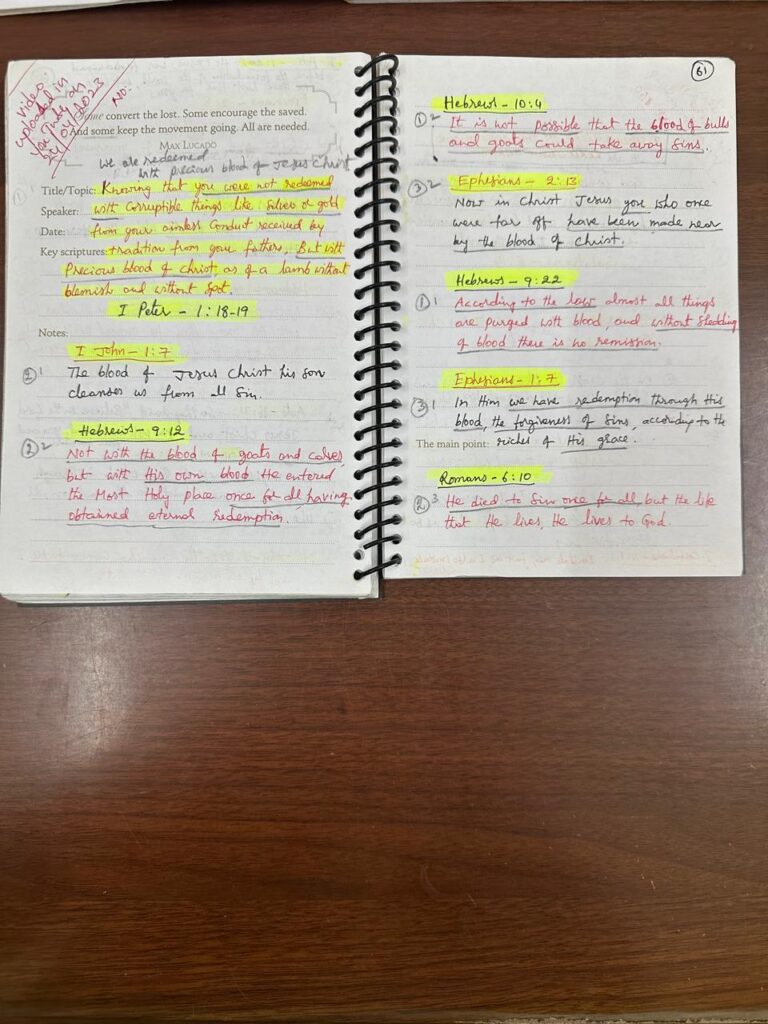 video
uploaded in
YouTube on
24/04/2023
NO:-
Some convert the lost. Some encourage the saved.
And some keep the movement going. All are needed.
MAX LUCADO
we are redeemed
with precious blood of Jesus Christ
Title/Topic: Knowing that you were not redeemed
Speaker: with corruptible things like silver or gold
Date: from your aimless conduct received by
Key scriptures: tradition from your fathers, But with
Precious blood of christ as of a lamb without
blemish and without spot.
I Peter - 1:18-19
Notes:
I John - 1:7
② 1 The blood of Jesus Christ his son
cleanses us from all sin.
Hebrews - 9:12
② 2 Not with the blood of goats and calves,
but with His own blood He entered
the Most Holy place once for all, having
obtained eternal redemption.
61
Hebrews - 10:4
① 2 It is not possible that the blood of bulls
and goats could take away sins.
③ 2 Ephesians - 2:13
Now in Christ Jesus you who once
were far off have been made near
by the blood of Christ.
Hebrews - 9:22
① 1 According to the law almost all things
are purged with blood, and without shedding
of blood there is no remission.
Ephesians - 1:7
③ 1 In Him we have redemption through His
blood, the forgiveness of sins, according to the
The main point: riches of His grace.
Romans - 6:10
② 3 He died to sin one for all but the life
that He lives, He lives to God.